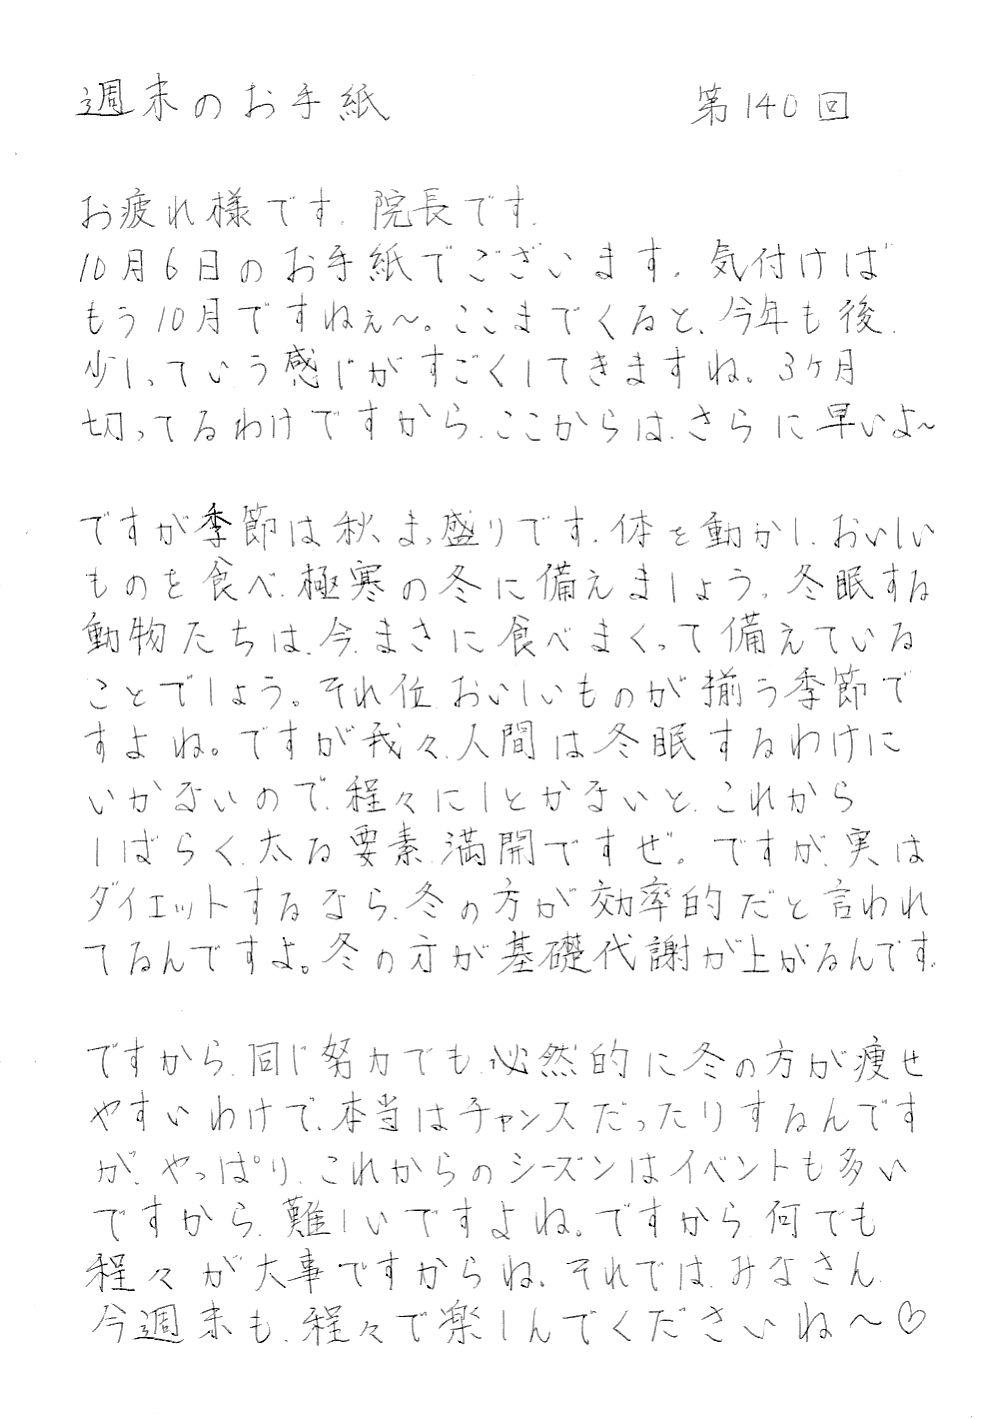 週末のお手紙 第140回
お疲れ様です、院長です、
10月6日のお手紙でございます。気付けば
もう10月ですねぇ〜。ここまでくると、今年も後、
少しっていう感じがすごくしてきますね。3ヶ月
切ってるわけですから、ここからは、さらに早いよ〜
ですが季節は秋まっ盛りです、体を動かし、おいしい
ものを食べ、極寒の冬に備えましょう。冬眠する
動物たちは、今、まさに食べまくって備えている
ことでしょう。それ位、おいしいものが揃う季節で
すよね。ですが我々、人間は冬眠するわけに
いかないので、程々にしとかないと、これから
しばらく、太る要素、満開ですぜ。ですが、実は
ダイエットするなら、冬の方が効率的だと言われ
てるんですよ。冬の方が基礎代謝が上がるんです、
ですから、同じ努力でも、必然的に冬の方が痩せ
やすいわけで、本当はチャンスだったりするんです
が、やっぱり、これからのシーズンはイベントも多い
ですから、難しいですよね。ですから、何でも
程々が大事ですからね、それでは、みなさん、
今週末も、程々で楽しんでくださいね〜♡